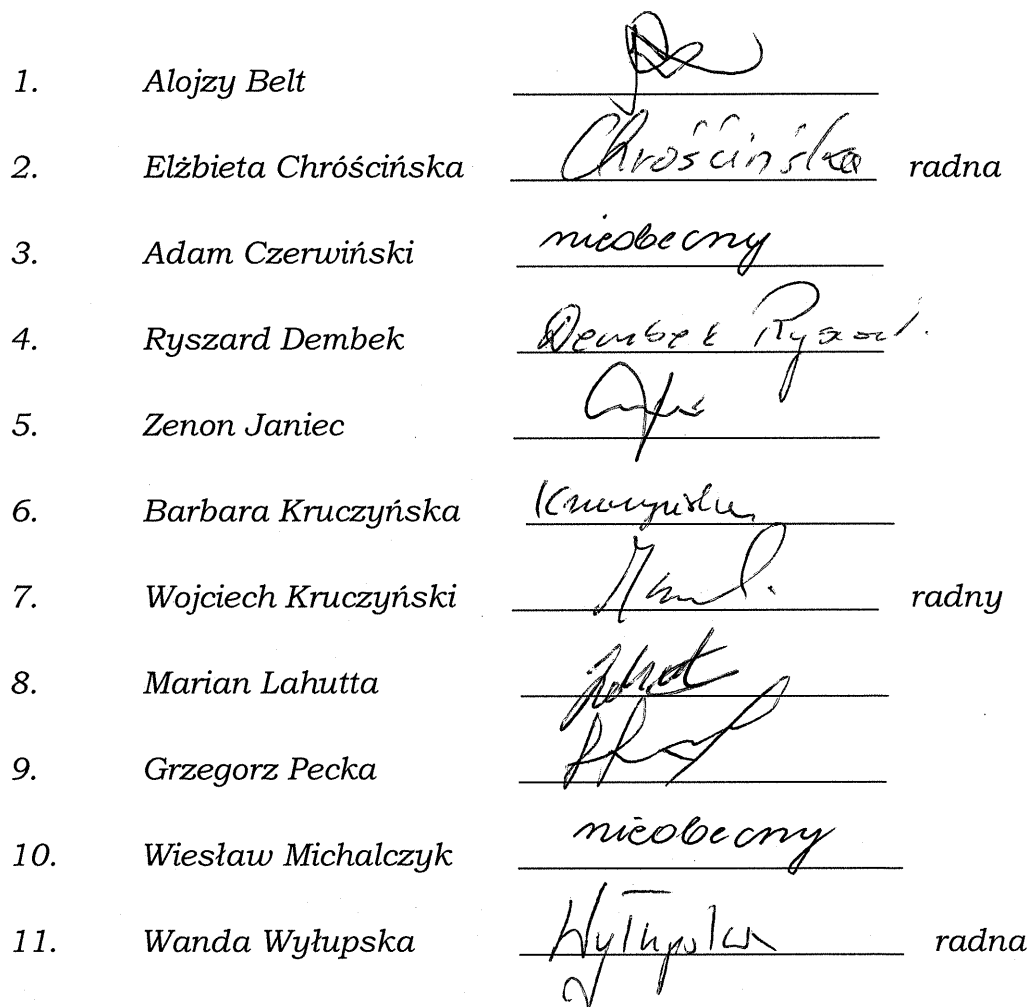 1. Alojzy Belt
2. Elżbieta Chróścińska Chróścińska radna
3. Adam Czerwiński nieobecny
4. Ryszard Dembek Dembek Ryszard
5. Zenon Janiec
6. Barbara Kruczyńska Kruczyńska
7. Wojciech Kruczyński radny
8. Marian Lahutta
9. Grzegorz Pecka
10. Wiesław Michalczyk nieobecny
11. Wanda Wyłupska Wyłupska radna